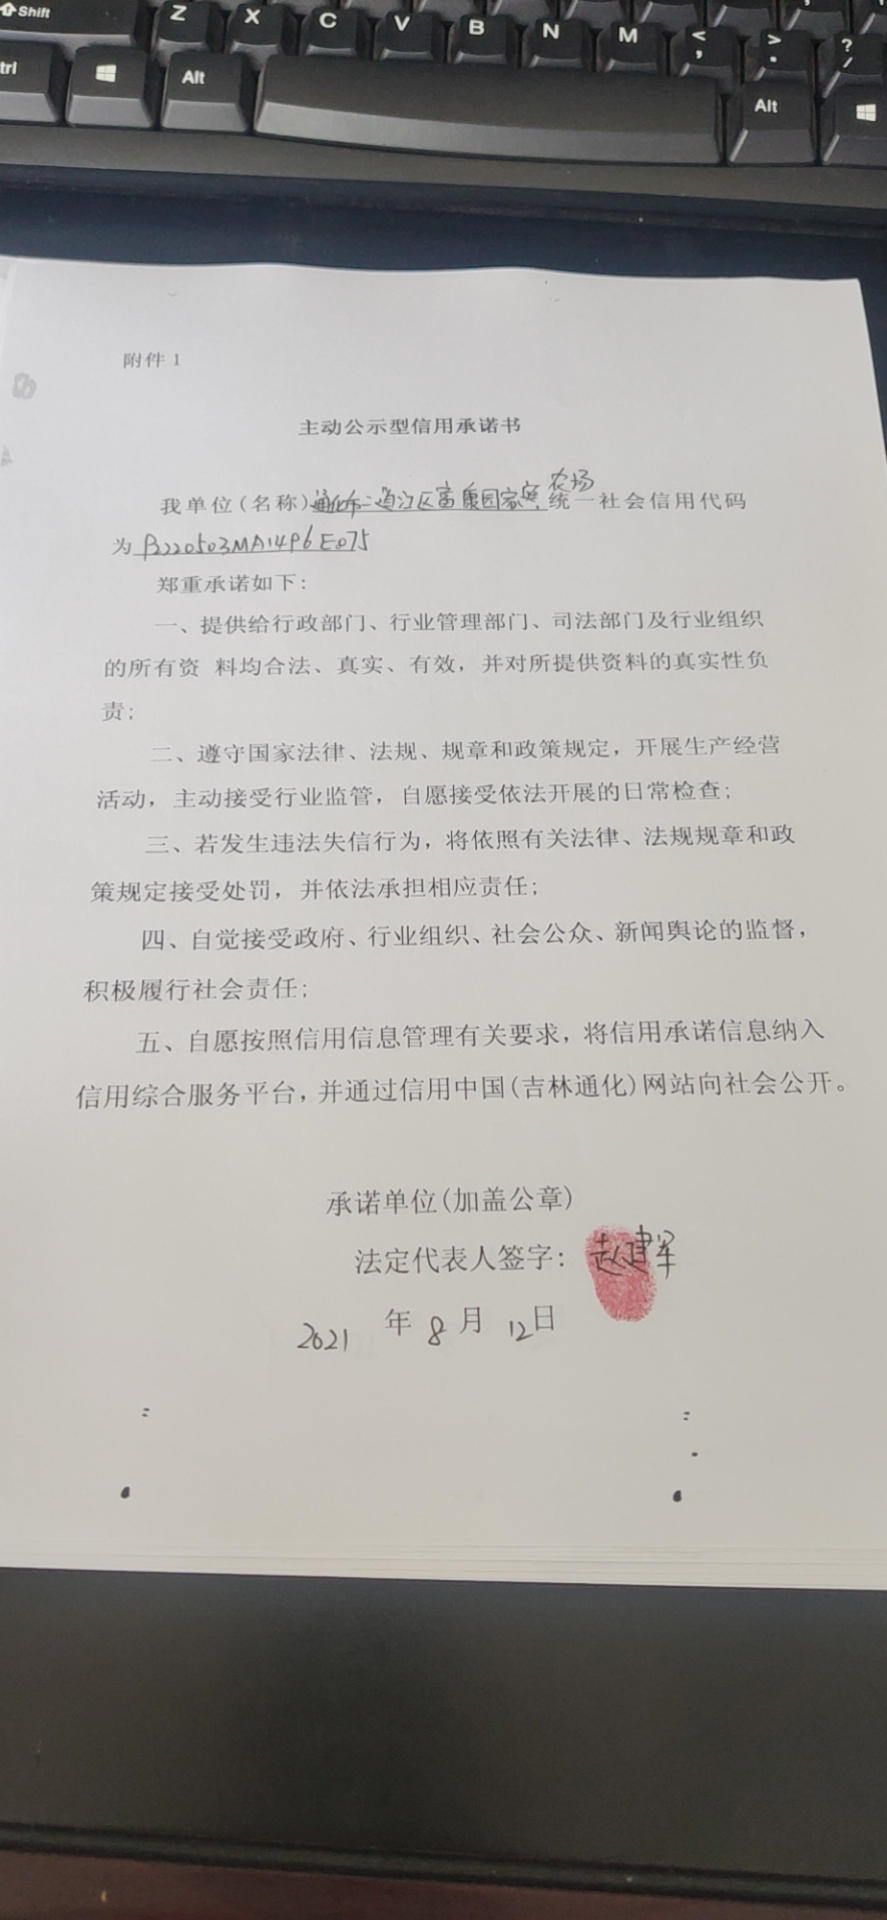 Shift Z X C V B N M < , > . ? /
trl Alt Alt
附件1
主动公示型信用承诺书
我单位(名称)通化市二道江区富康园家庭农场统一社会信用代码
为B220503MA14P6E075
郑重承诺如下:
一、提供给行政部门、行业管理部门、司法部门及行业组织
的所有资 料均合法、真实、有效，并对所提供资料的真实性负
责;
二、遵守国家法律、法规、规章和政策规定，开展生产经营
活动，主动接受行业监管，自愿接受依法开展的日常检查;
三、若发生违法失信行为，将依照有关法律、法规规章和政
策规定接受处罚，并依法承担相应责任;
四、自觉接受政府、行业组织、社会公众、新闻舆论的监督，
积极履行社会责任;
五、自愿按照信用信息管理有关要求，将信用承诺信息纳入
信用综合服务平台，并通过信用中国(吉林通化)网站向社会公开。
承诺单位(加盖公章)
法定代表人签字: 赵建军
2021 年 8 月 12日